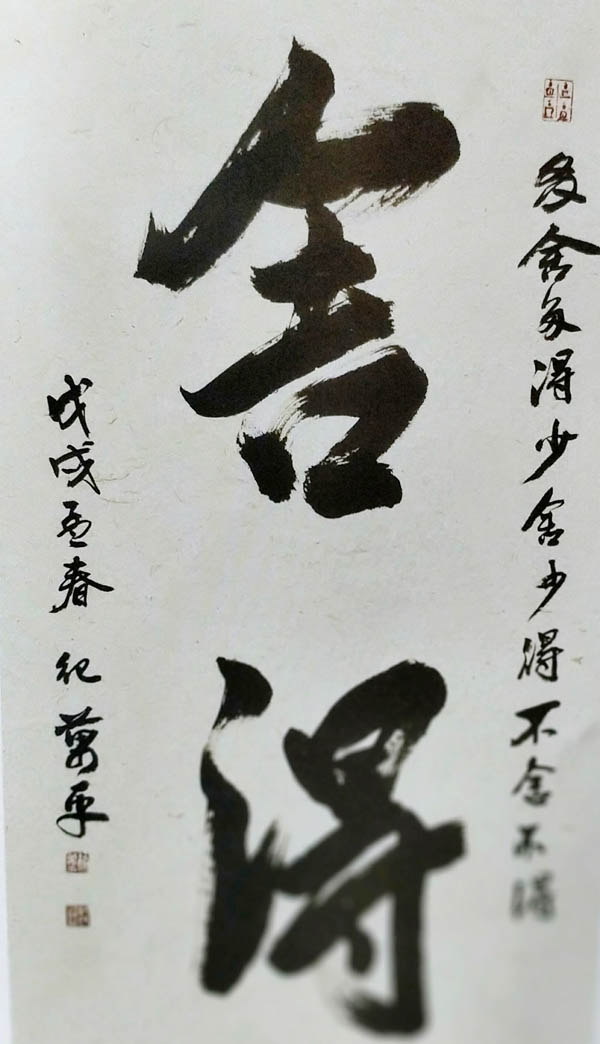 多舍多得少舍少得不舍不得
舍得
戊戌孟春 纪万平